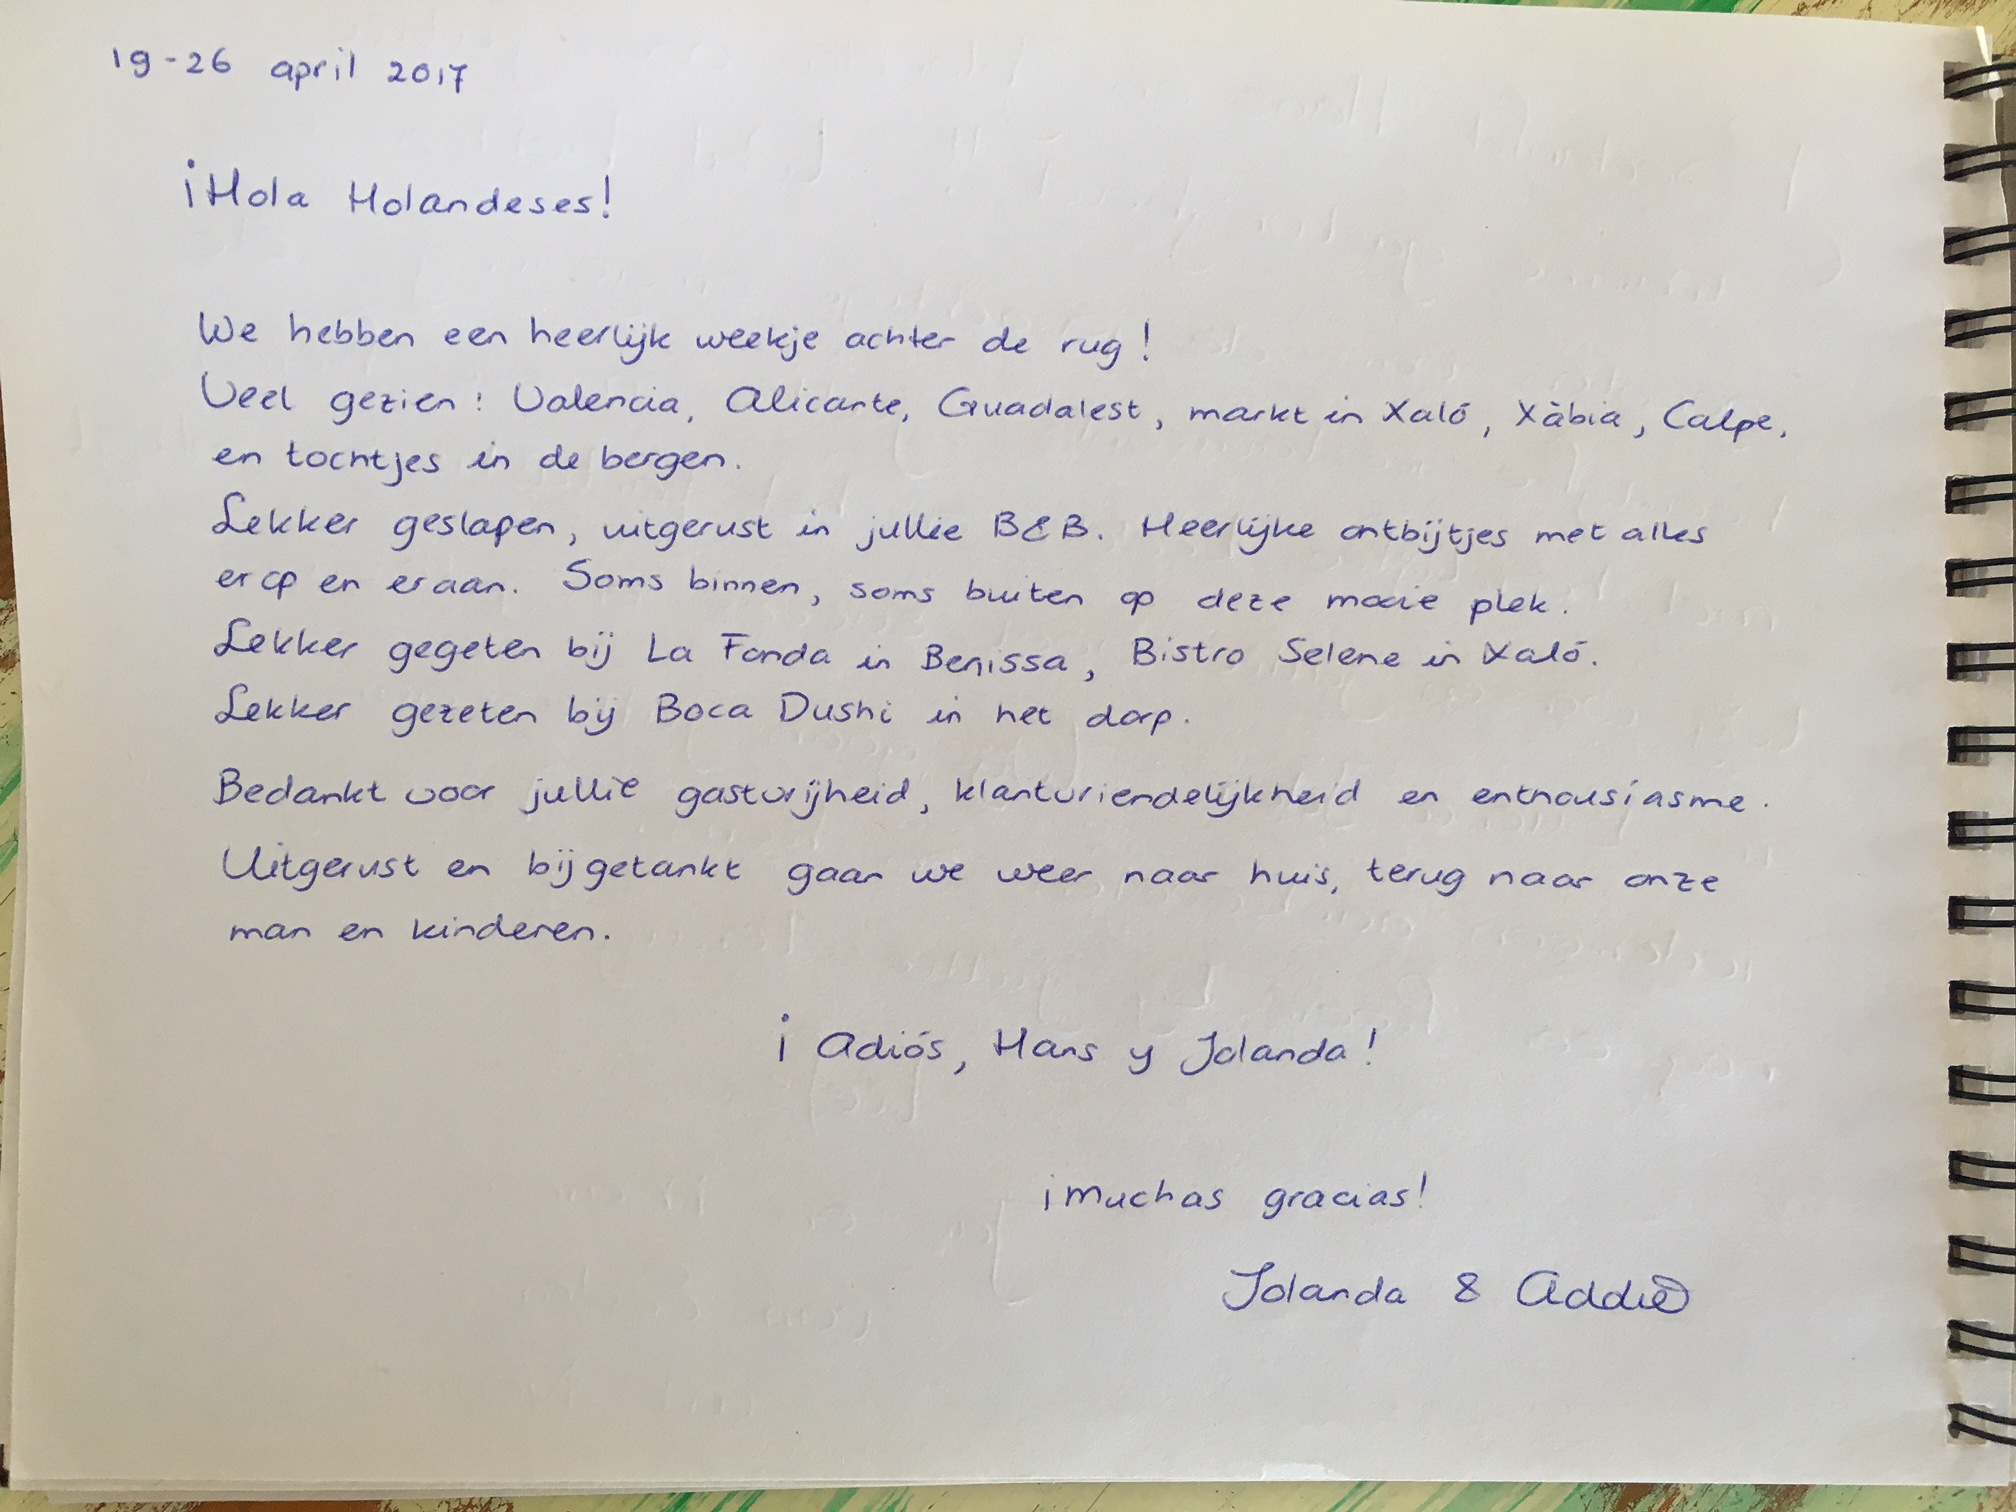 19-26 april 2017
¡Hola Holandeses!
We hebben een heerlijk weekje achter de rug!
Veel gezien: Valencia, Alicante, Guadalest, markt in Xaló, Xàbia, Calpe,
en tochtjes in de bergen.
Lekker geslapen, uitgerust in jullie B&B. Heerlijke ontbijtjes met alles
erop en eraan. Soms binnen, soms buiten op deze mooie plek.
Lekker gegeten bij La Fonda in Benissa, Bistro Selene in Xaló.
Lekker gezeten bij Boca Dushi in het dorp.
Bedankt voor jullie gastvrijheid, klantvriendelijkheid en enthousiasme.
Uitgerust en bijgetankt gaan we weer naar huis, terug naar onze
man en kinderen.
¡Adiós, Hans y Jolanda!
¡Muchas gracias!
Jolanda & Addie